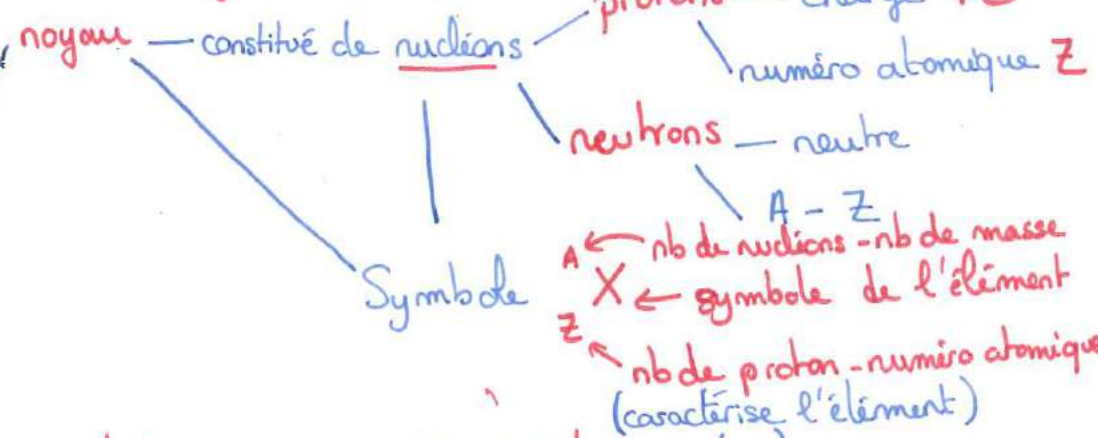 noyau — constitué de nucléons
numéro atomique Z
neutrons — neutre
A - Z
A ← nb de nucléons - nb de masse
Symbole X ← symbole de l'élément
Z
nb de proton - numéro atomique
(caractérise l'élément)